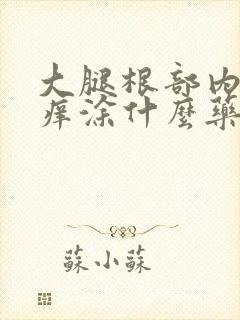 大腿根部内
痒涂什麼藥
蘇小蘇